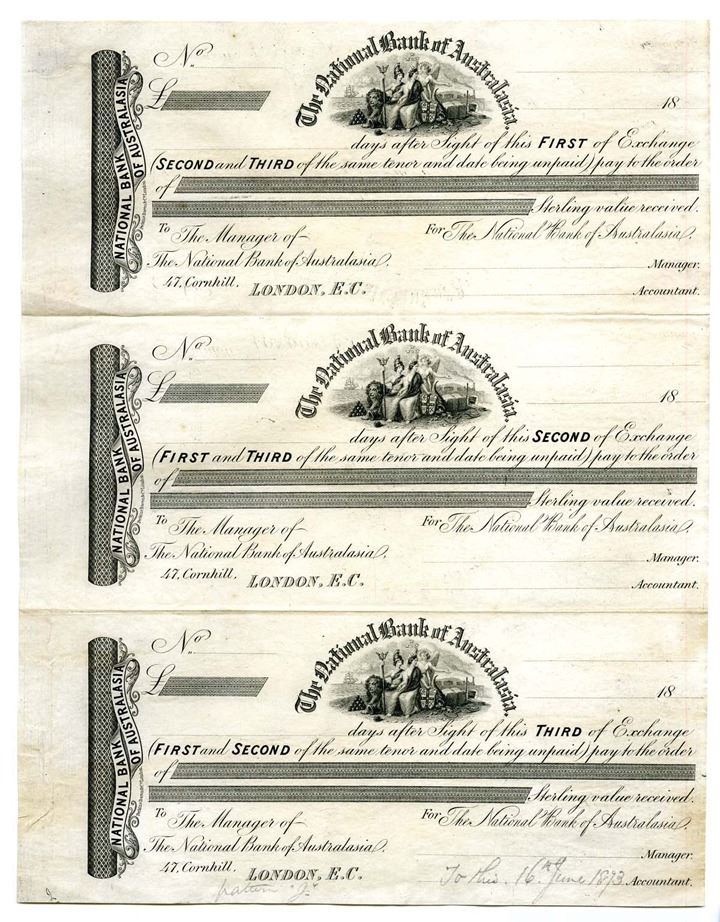 No.
The National Bank of Australasia.
£
18
NATIONAL BANK
OF AUSTRALASIA
days after Sight of this FIRST of Exchange
(SECOND and THIRD of the same tenor and date being unpaid) pay to the order
of
Sterling value received.
To The Manager of
For The National Bank of Australasia.
The National Bank of Australasia.
Manager.
47, Cornhill,
LONDON, E.C.
Accountant.
No.
The National Bank of Australasia.
£
18
NATIONAL BANK
OF AUSTRALASIA
days after Sight of this SECOND of Exchange
(FIRST and THIRD of the same tenor and date being unpaid) pay to the order
of
Sterling value received.
To The Manager of
For The National Bank of Australasia.
The National Bank of Australasia.
Manager.
47, Cornhill,
LONDON, E.C.
Accountant.
No.
The National Bank of Australasia.
£
18
NATIONAL BANK
OF AUSTRALASIA
days after Sight of this THIRD of Exchange
(FIRST and SECOND of the same tenor and date being unpaid) pay to the order
of
Sterling value received.
To The Manager of
For The National Bank of Australasia.
The National Bank of Australasia.
Manager.
47, Cornhill,
LONDON, E.C.
To this 16th June 1893
Accountant.
pattern